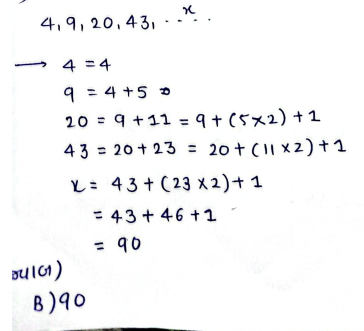 4, 9, 20, 43, ..x..
→ 4 = 4
9 = 4+5
20 = 9+11 = 9+(5×2)+1
43 = 20+23 = 20+(11×2)+1
x = 43+(23×2)+1
= 43+46+1
= 90
B) 90